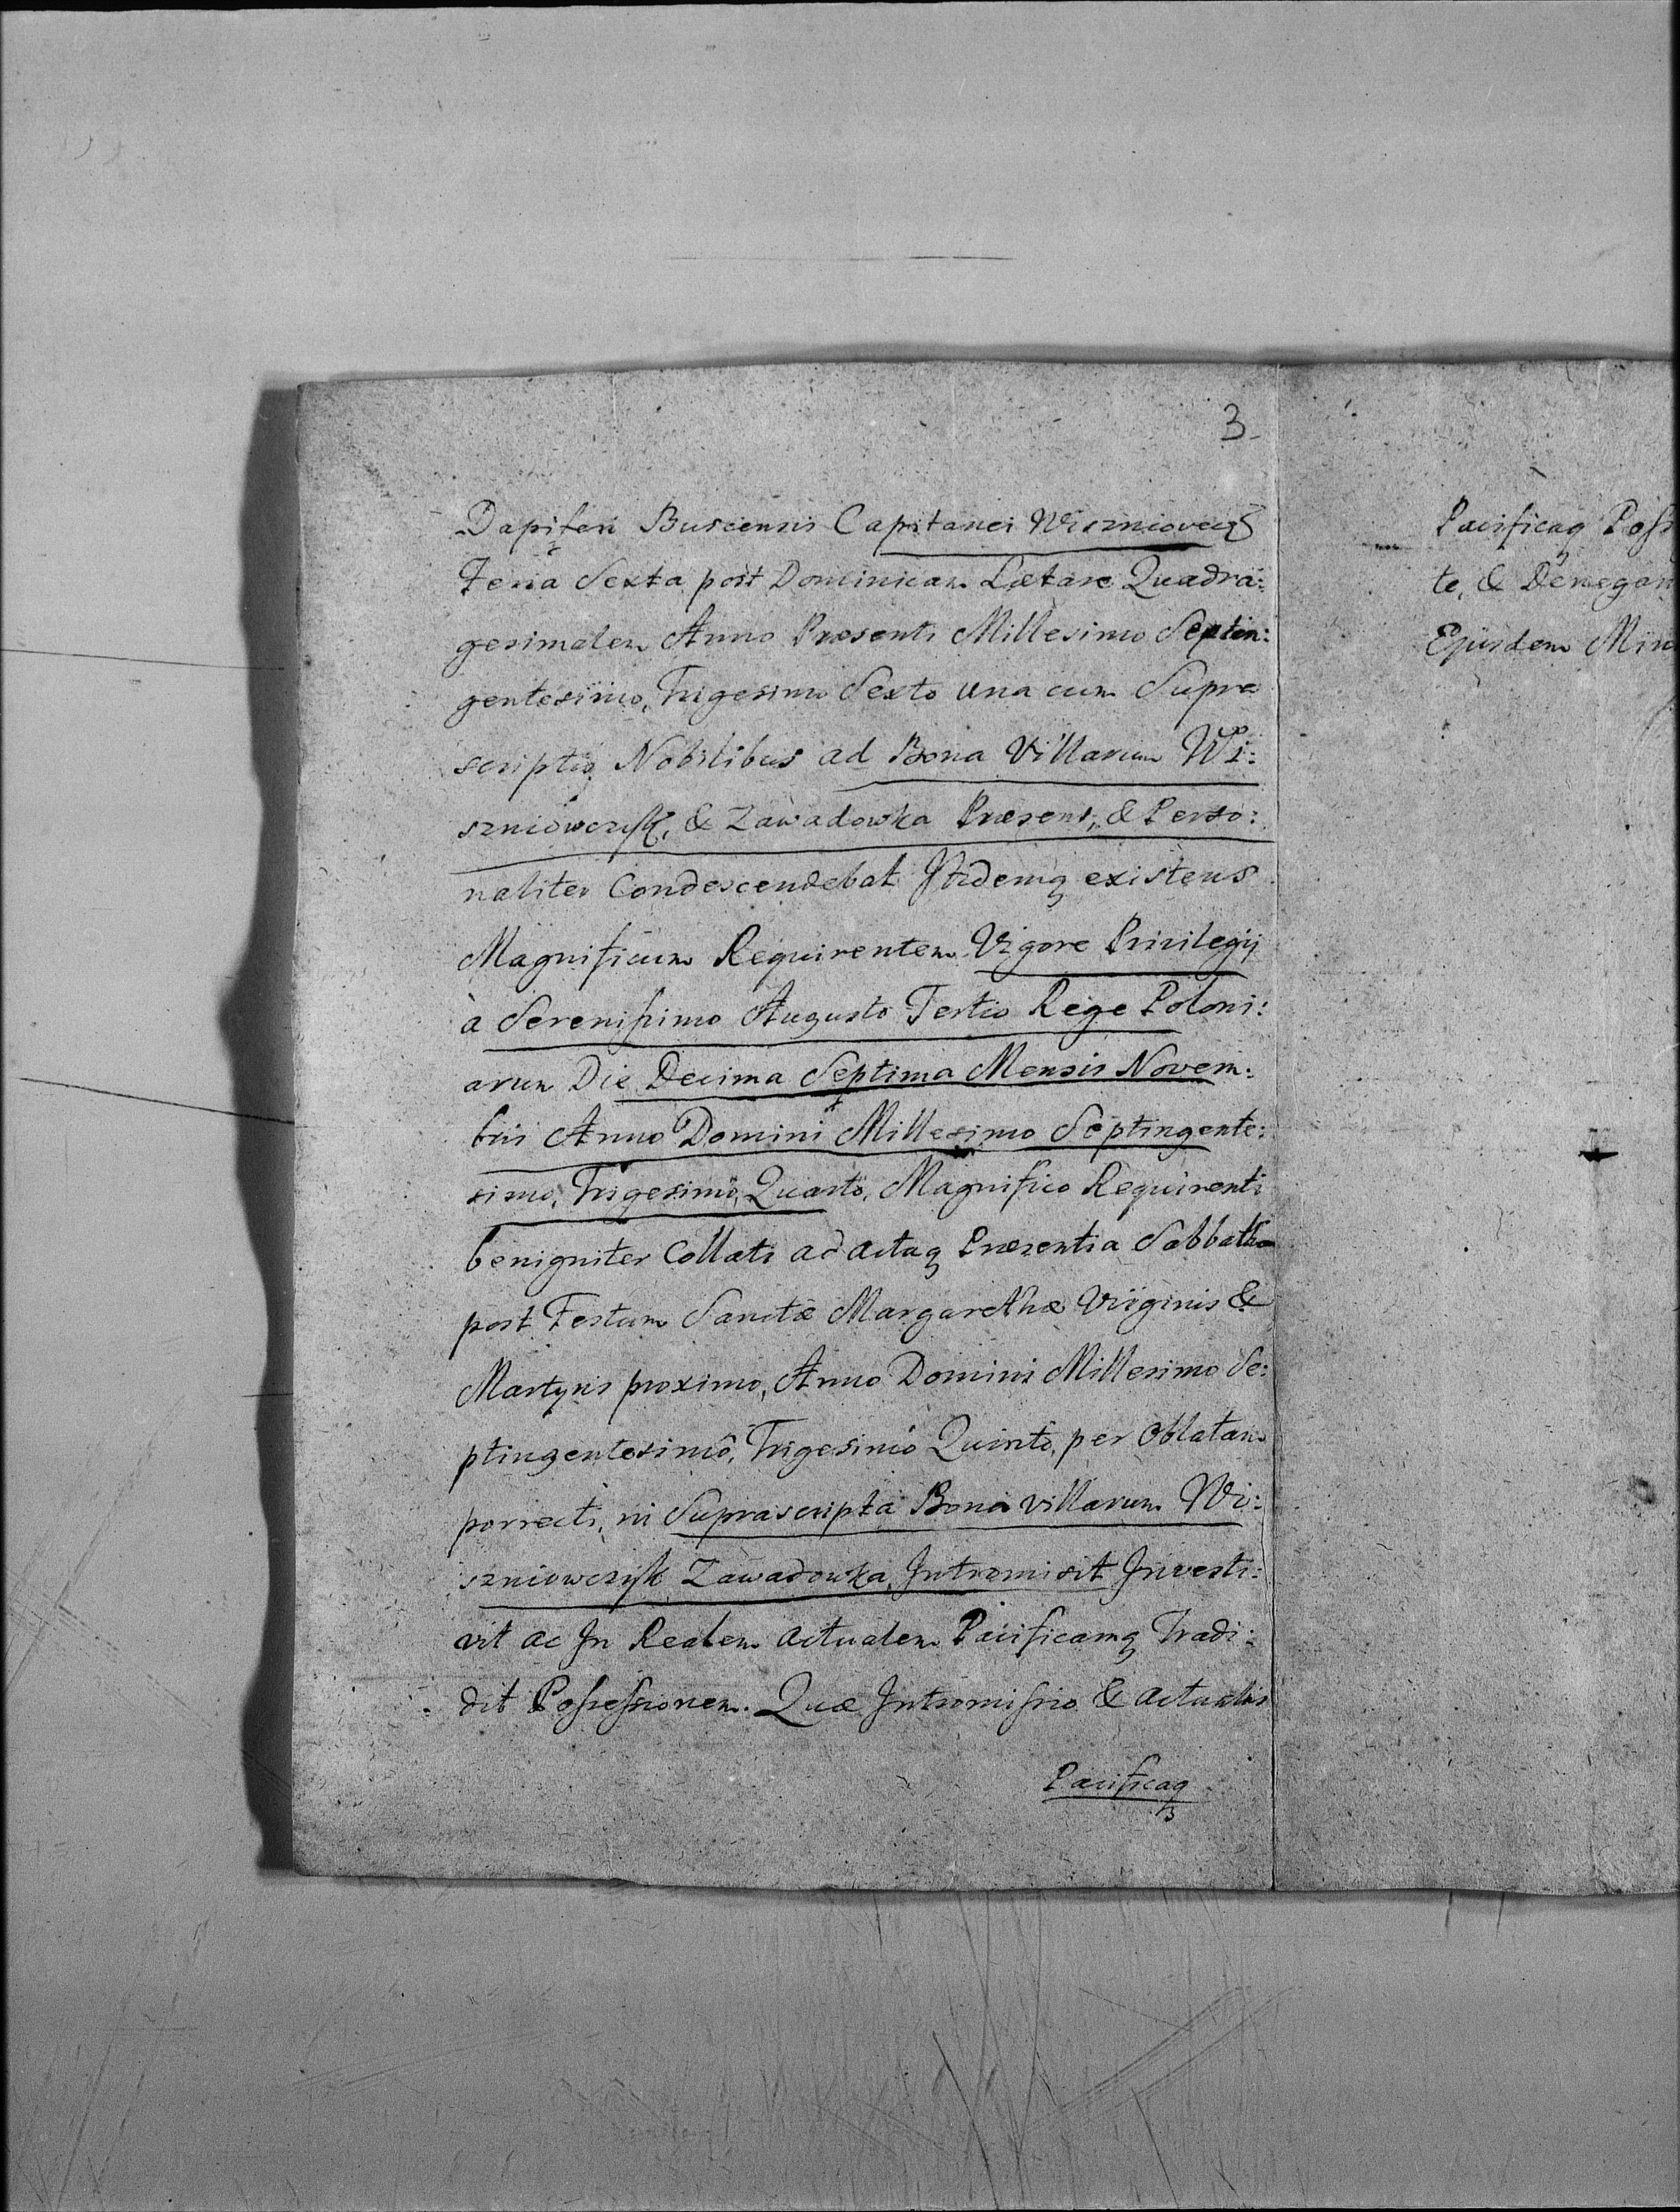 3
Dapiferi Buscensis Capitanei
Feria Sexta post Dominicam Lætare Quadra:
gesimalem Anno Præsenti Millesimo Septin:
gentesimo, Trigesimo Sexto una cum Supra
scriptis Nobilibus ad Bona Villarum Wi:
szniowczyk, & Zawadowka Præsens, & Perso:
naliter Condescendebat Ibidemq existens
Magnificum Requirentem Vigore Privilegij
à Serenissimo Augusto Tertio Rege Poloni:
arum Die Decima Septima Mensis Novem:
bris Anno Domini Millesimo Septingente:
simo, Trigesimo, Quarto, Magnifico Requirenti
benigniter Collati ad Actaq Præsentia Sabbatho
post Festum Sanctæ Margarethæ Virginis &
Martyris proximo, Anno Domini Millesimo Se:
ptingentesimô, Trigesimo Quinto, per Oblatam
porrecti, in Suprascripta Bona villarum Wi:
szniowczyk Zawadowka, Intromisit Investi:
vit ac In Realem Actualem Pacificamq Tradi:
dit Possessionem. Quæ Intromissio & Actualis
Pacificaq
Pacificaq Poss
te, & Denegan
Ejusdem Min